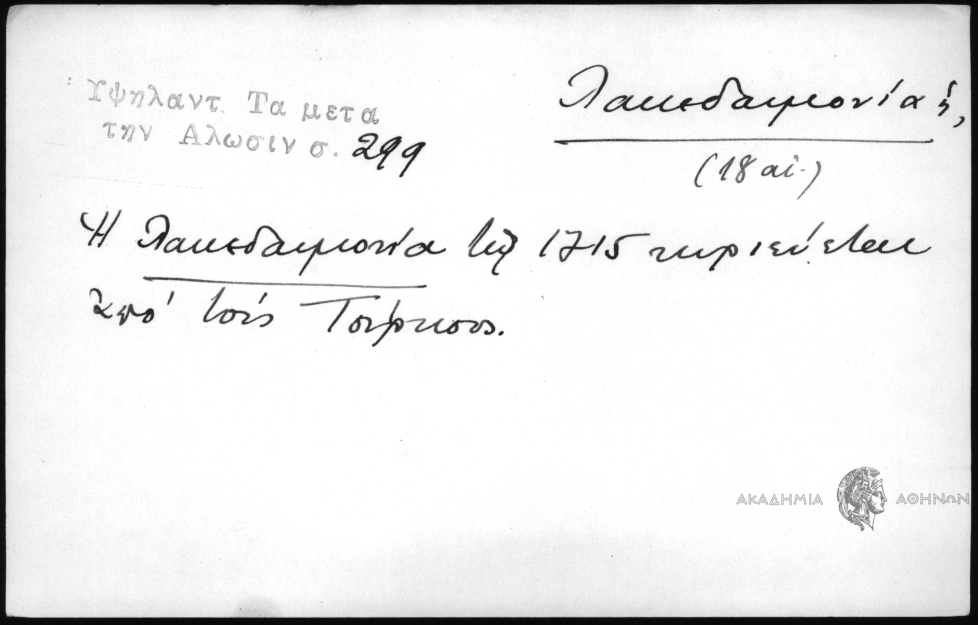 Υψηλαντ. Τα μετα
την Αλωσιν σ. 299
Λακεδαιμονία ἡ,
(18 αἰ.)
Ἡ Λακεδαιμονία τῷ 1715 κυριεύεται
ὑπό τούς Τούρκους.
ΑΚΑΔΗΜΙΑ ΑΘΗΝΩΝ